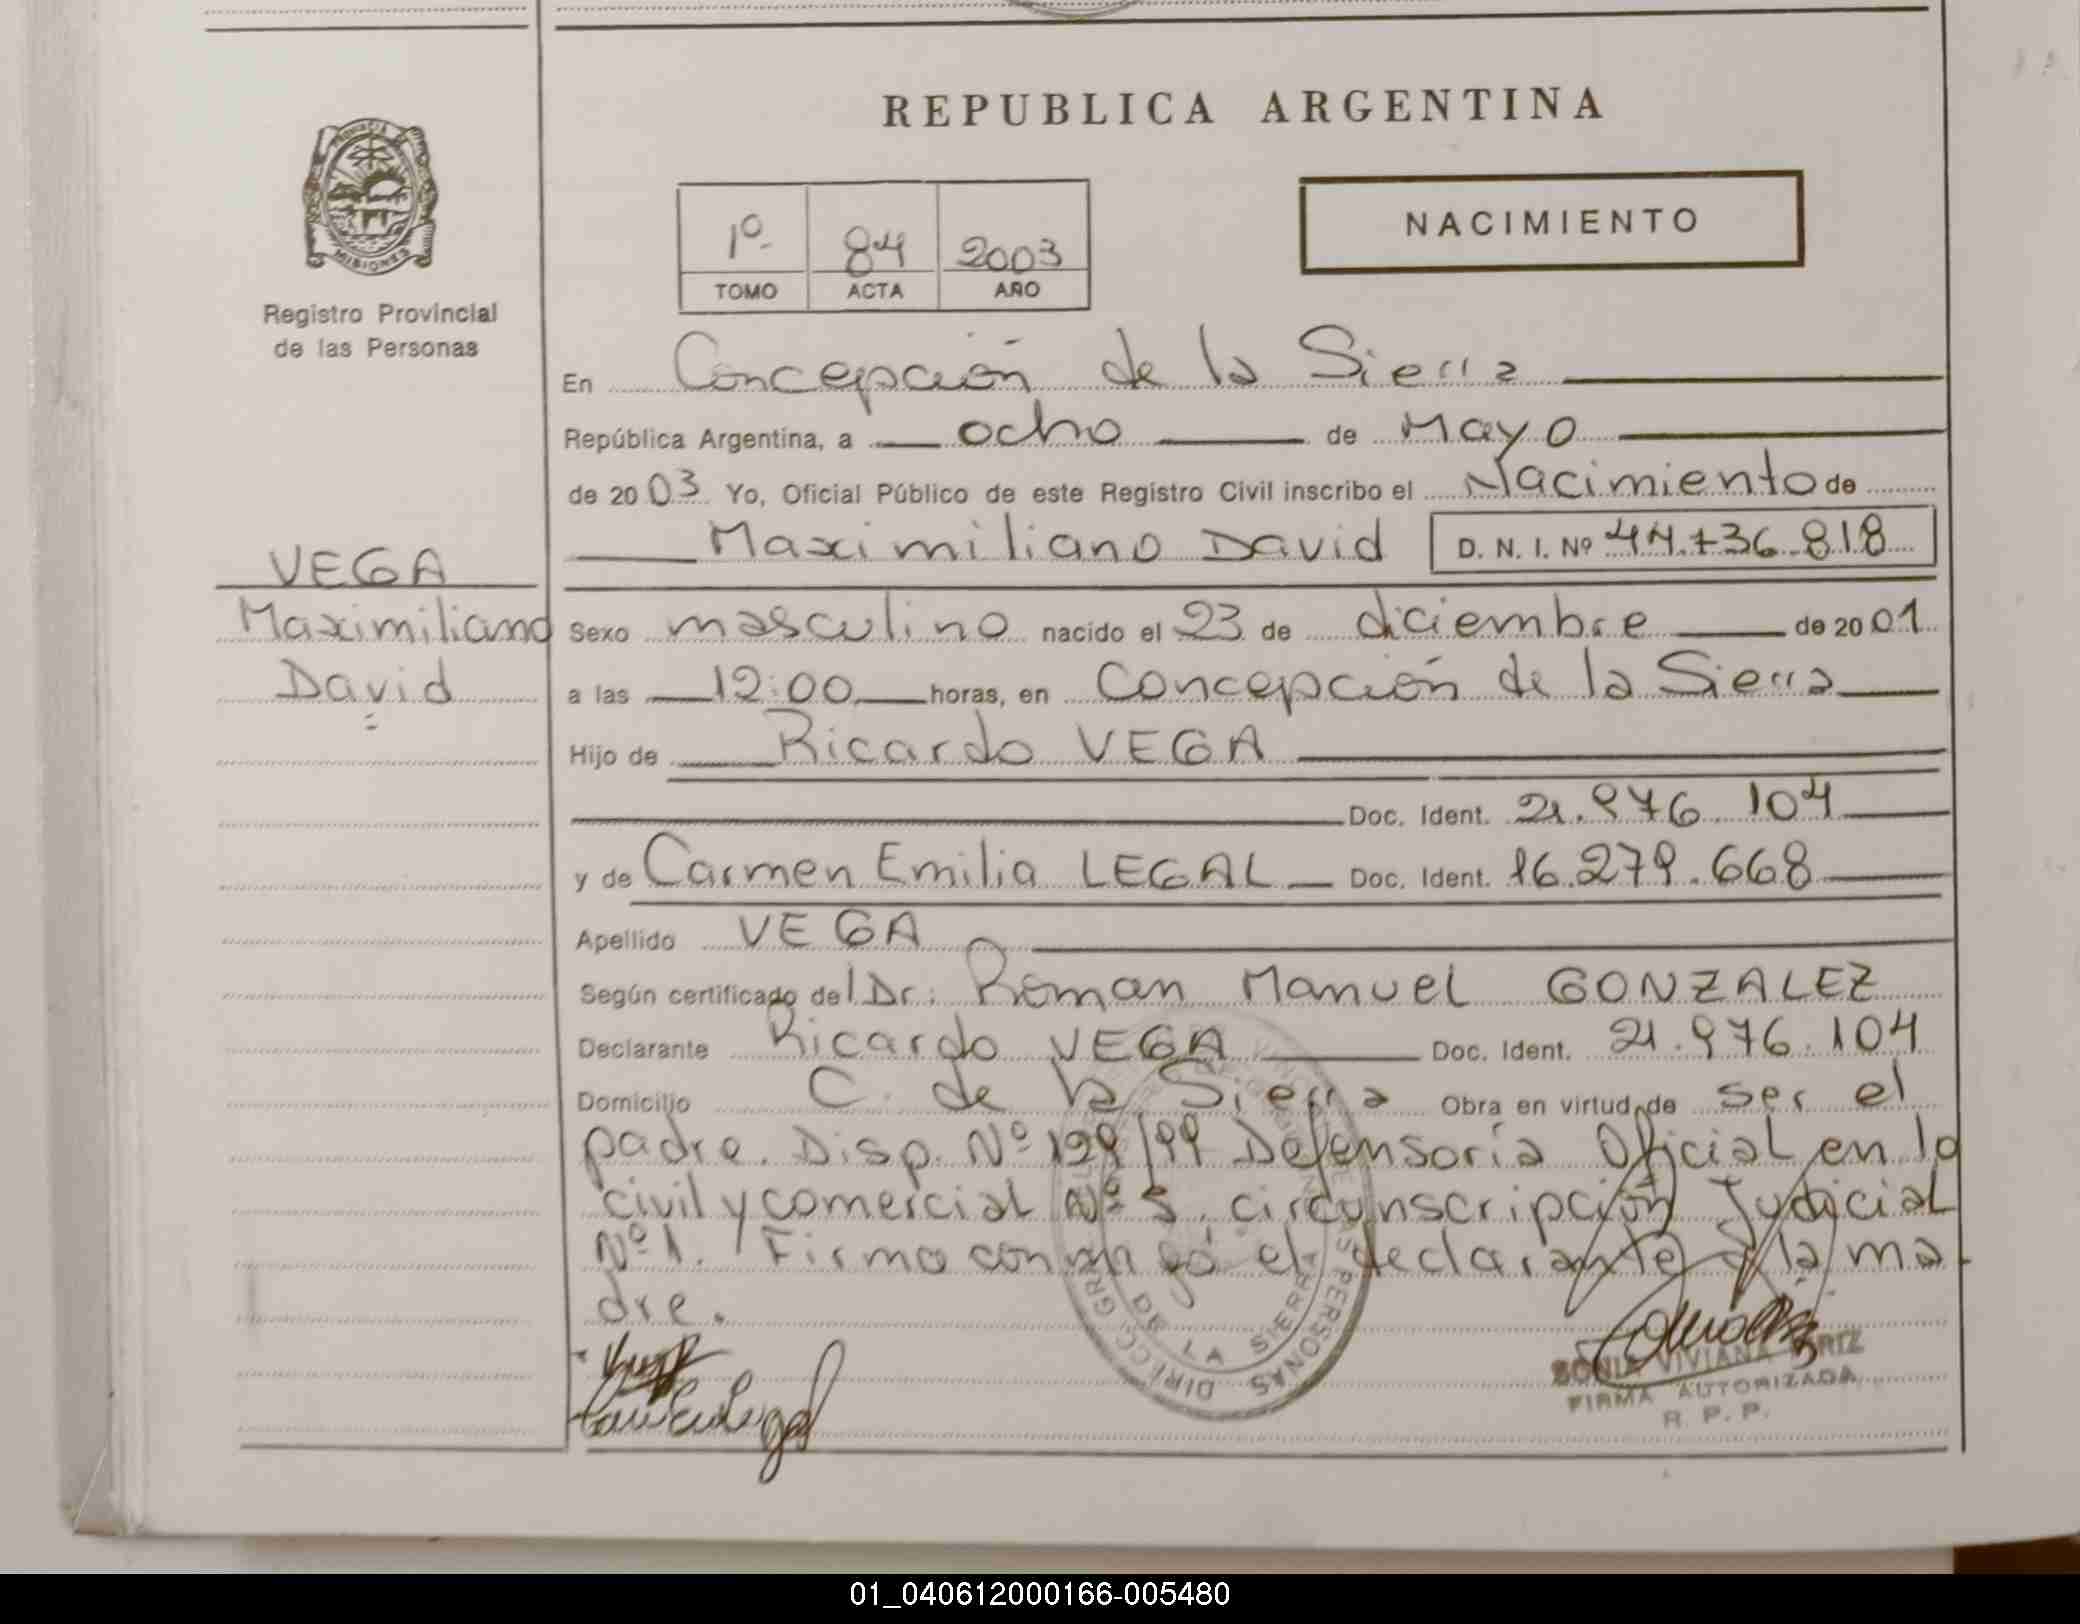 REPUBLICA ARGENTINA
PROVINCIA
MISIONES
Registro Provincial
de las Personas
NACIMIENTO
1º 84 2003
TOMO ACTA AÑO
En Concepción de la Sierra
República Argentina, a ocho de Mayo
de 2003 Yo, Oficial Público de este Registro Civil inscribo el Nacimiento de
Maximiliano David D. N. I. Nº 44.736.818
VEGA
Maximiliano
David
Sexo masculino nacido el 23 de diciembre de 2001
a las 12:00 horas, en Concepción de la Sierra
Hijo de Ricardo VEGA
Doc. Ident. 21.976.104
y de Carmen Emilia LEGAL Doc. Ident. 16.279.668
Apellido VEGA
Según certificado del Dr: Roman Manuel GONZALEZ
Declarante Ricardo VEGA Doc. Ident. 21.976.104
Domicilio C. de la Sierra Obra en virtud de ser el
padre. Disp. Nº 199/99 Defensoría Oficial en lo
civil y comercial Nº 5. circunscripción Judicial
Nº 1. Firma conmigo el declarante y la ma
dre.
DE LA SIERRA
PERSONAS
SONIA VIVIANA
FIRMA AUTORIZADA
R. P. P.
01_040612000166-005480